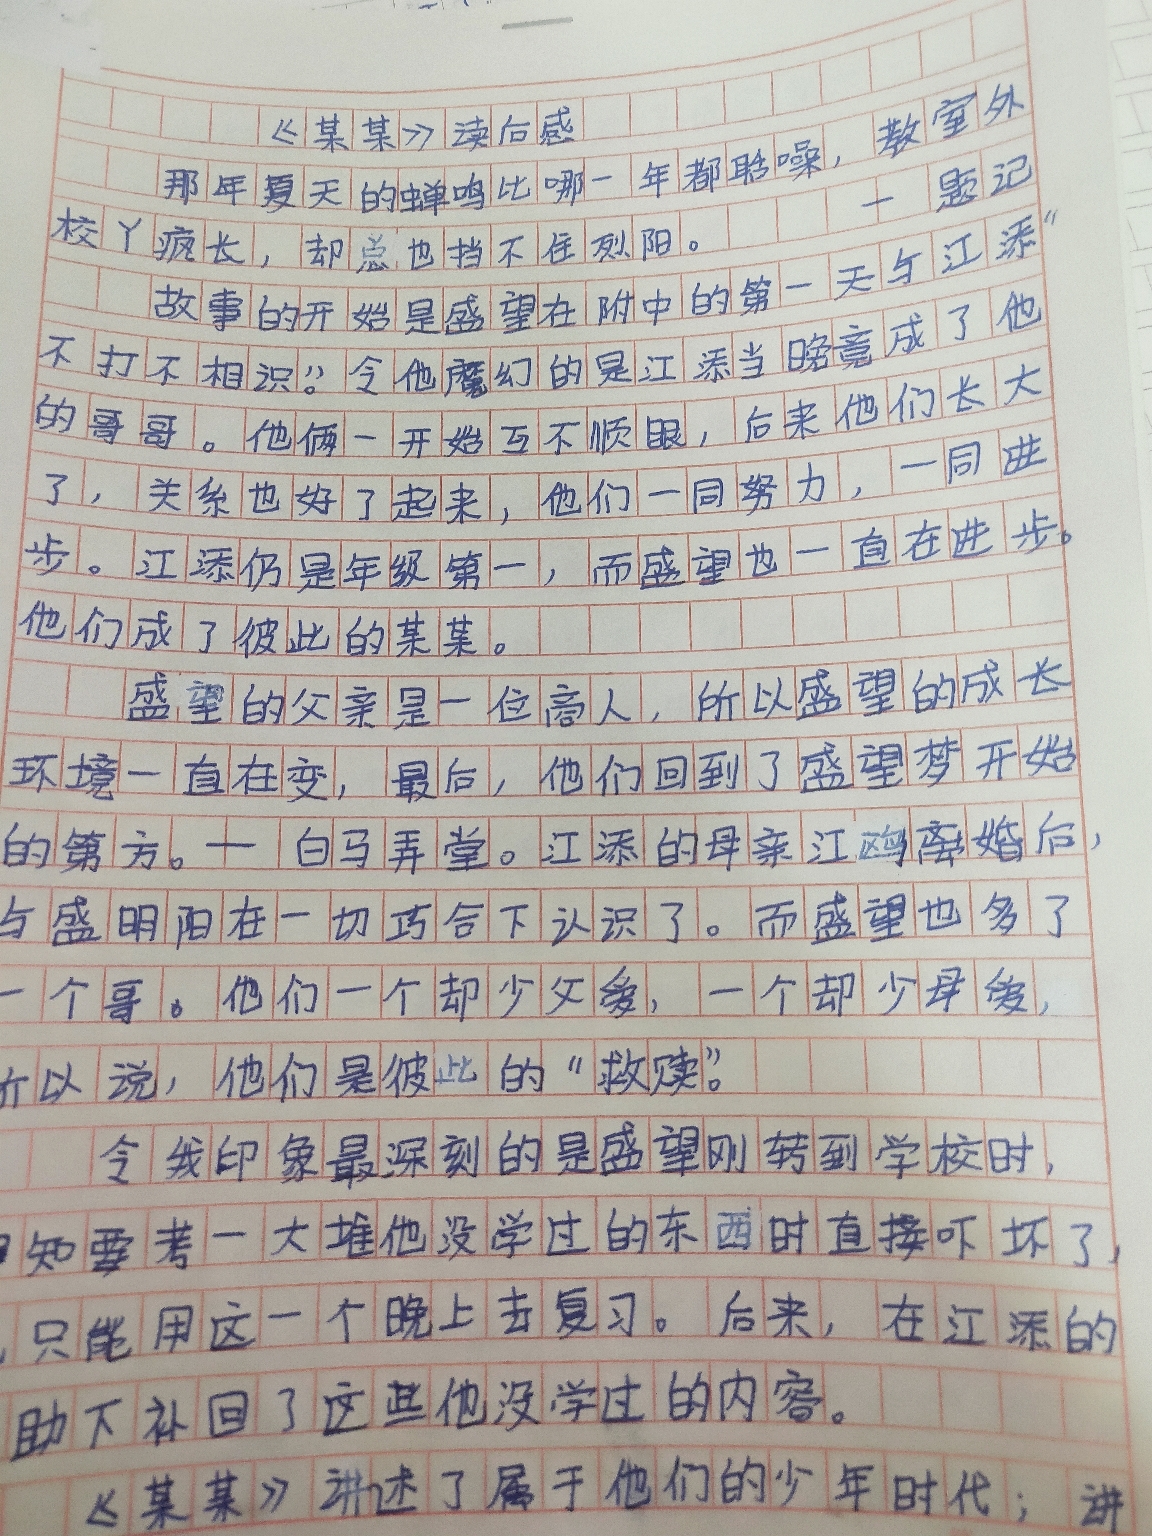 《某某》读后感
那年夏天的蝉鸣比哪一年都聒噪，教室外
校丫疯长，却总也挡不住烈阳。 —题记
故事的开始是盛望在附中的第一天与江添“
不打不相识”。令他魔幻的是江添当晚竟成了他
的哥哥。他俩一开始互不顺眼，后来他们长大
了，关系也好了起来，他们一同努力，一同进
步。江添仍是年级第一，而盛望也一直在进步。
他们成了彼此的某某。
盛望的父亲是一位商人，所以盛望的成长
环境一直在变，最后，他们回到了盛望梦开始
的第方。—白马弄堂。江添的母亲江鸥离婚后，
与盛明阳在一切巧合下认识了。而盛望也多了
一个哥。他们一个却少父爱，一个却少母爱，
所以说，他们是彼此的“救赎”。
令我印象最深刻的是盛望刚转到学校时，
知要考一大堆他没学过的东西时直接吓坏了，
只能用这一个晚上去复习。后来，在江添的
助下补回了这些他没学过的内容。
《某某》讲述了属于他们的少年时代；讲